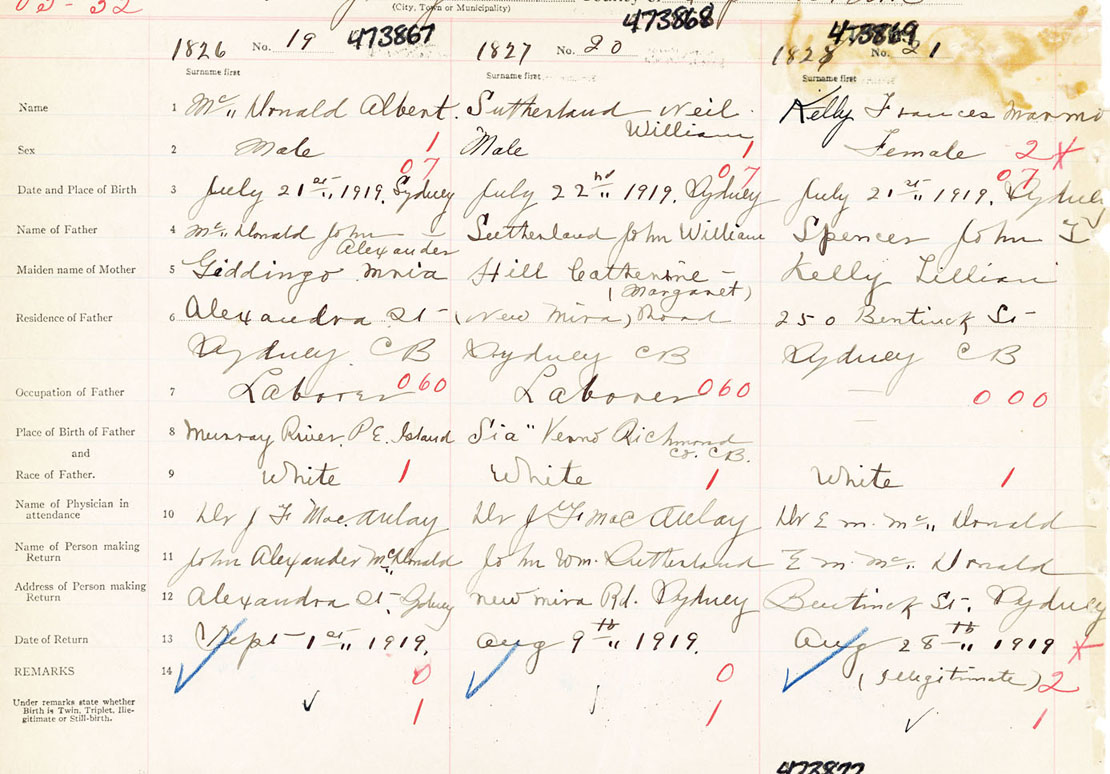 03-32
(City, Town or Municipality)
473867 473868 473869
1826 No. 19 1827 No. 20 1828 No. 21
Surname first Surname first Surname first
Name 1 Mc Donald Albert. Sutherland Neil William Kelly Frances
Sex 2 Male 1 Male 1 Female 2 X
07 07 07
Date and Place of Birth 3 July 21st 1919. Sydney July 22nd 1919. Sydney July 21st 1919. Sydney
Name of Father 4 Mc Donald John Alexander Sutherland John William Spencer John
Maiden name of Mother 5 Giddingo Hill Catherine (Margaret) Kelly Lillian
Residence of Father 6 Alexandra St (New Mira) Road 250 Bentinck St
Sydney CB Sydney CB Sydney CB
Occupation of Father 7 Laborer 060 Laborer 060 — 000
Place of Birth of Father 8 Murray River. P.E. Island Richmond Co. CB.
and
Race of Father. 9 White 1 White 1 White 1
Name of Physician in attendance 10 Dr J F MacAulay Dr J F MacAulay Dr E M. Mc Donald
Name of Person making Return 11 John Alexander McDonald John Wm. Sutherland E M. Mc Donald
Address of Person making Return 12 Alexandra St. Sydney New Mira Rd. Sydney Bentinck St. Sydney
Date of Return 13 Sept 1st 1919. Aug 9th 1919. Aug 28th 1919 X
REMARKS 14 0 0 (Illegitimate) 2
Under remarks state whether Birth is Twin, Triplet, Illegitimate or Still-birth. 1 1 1